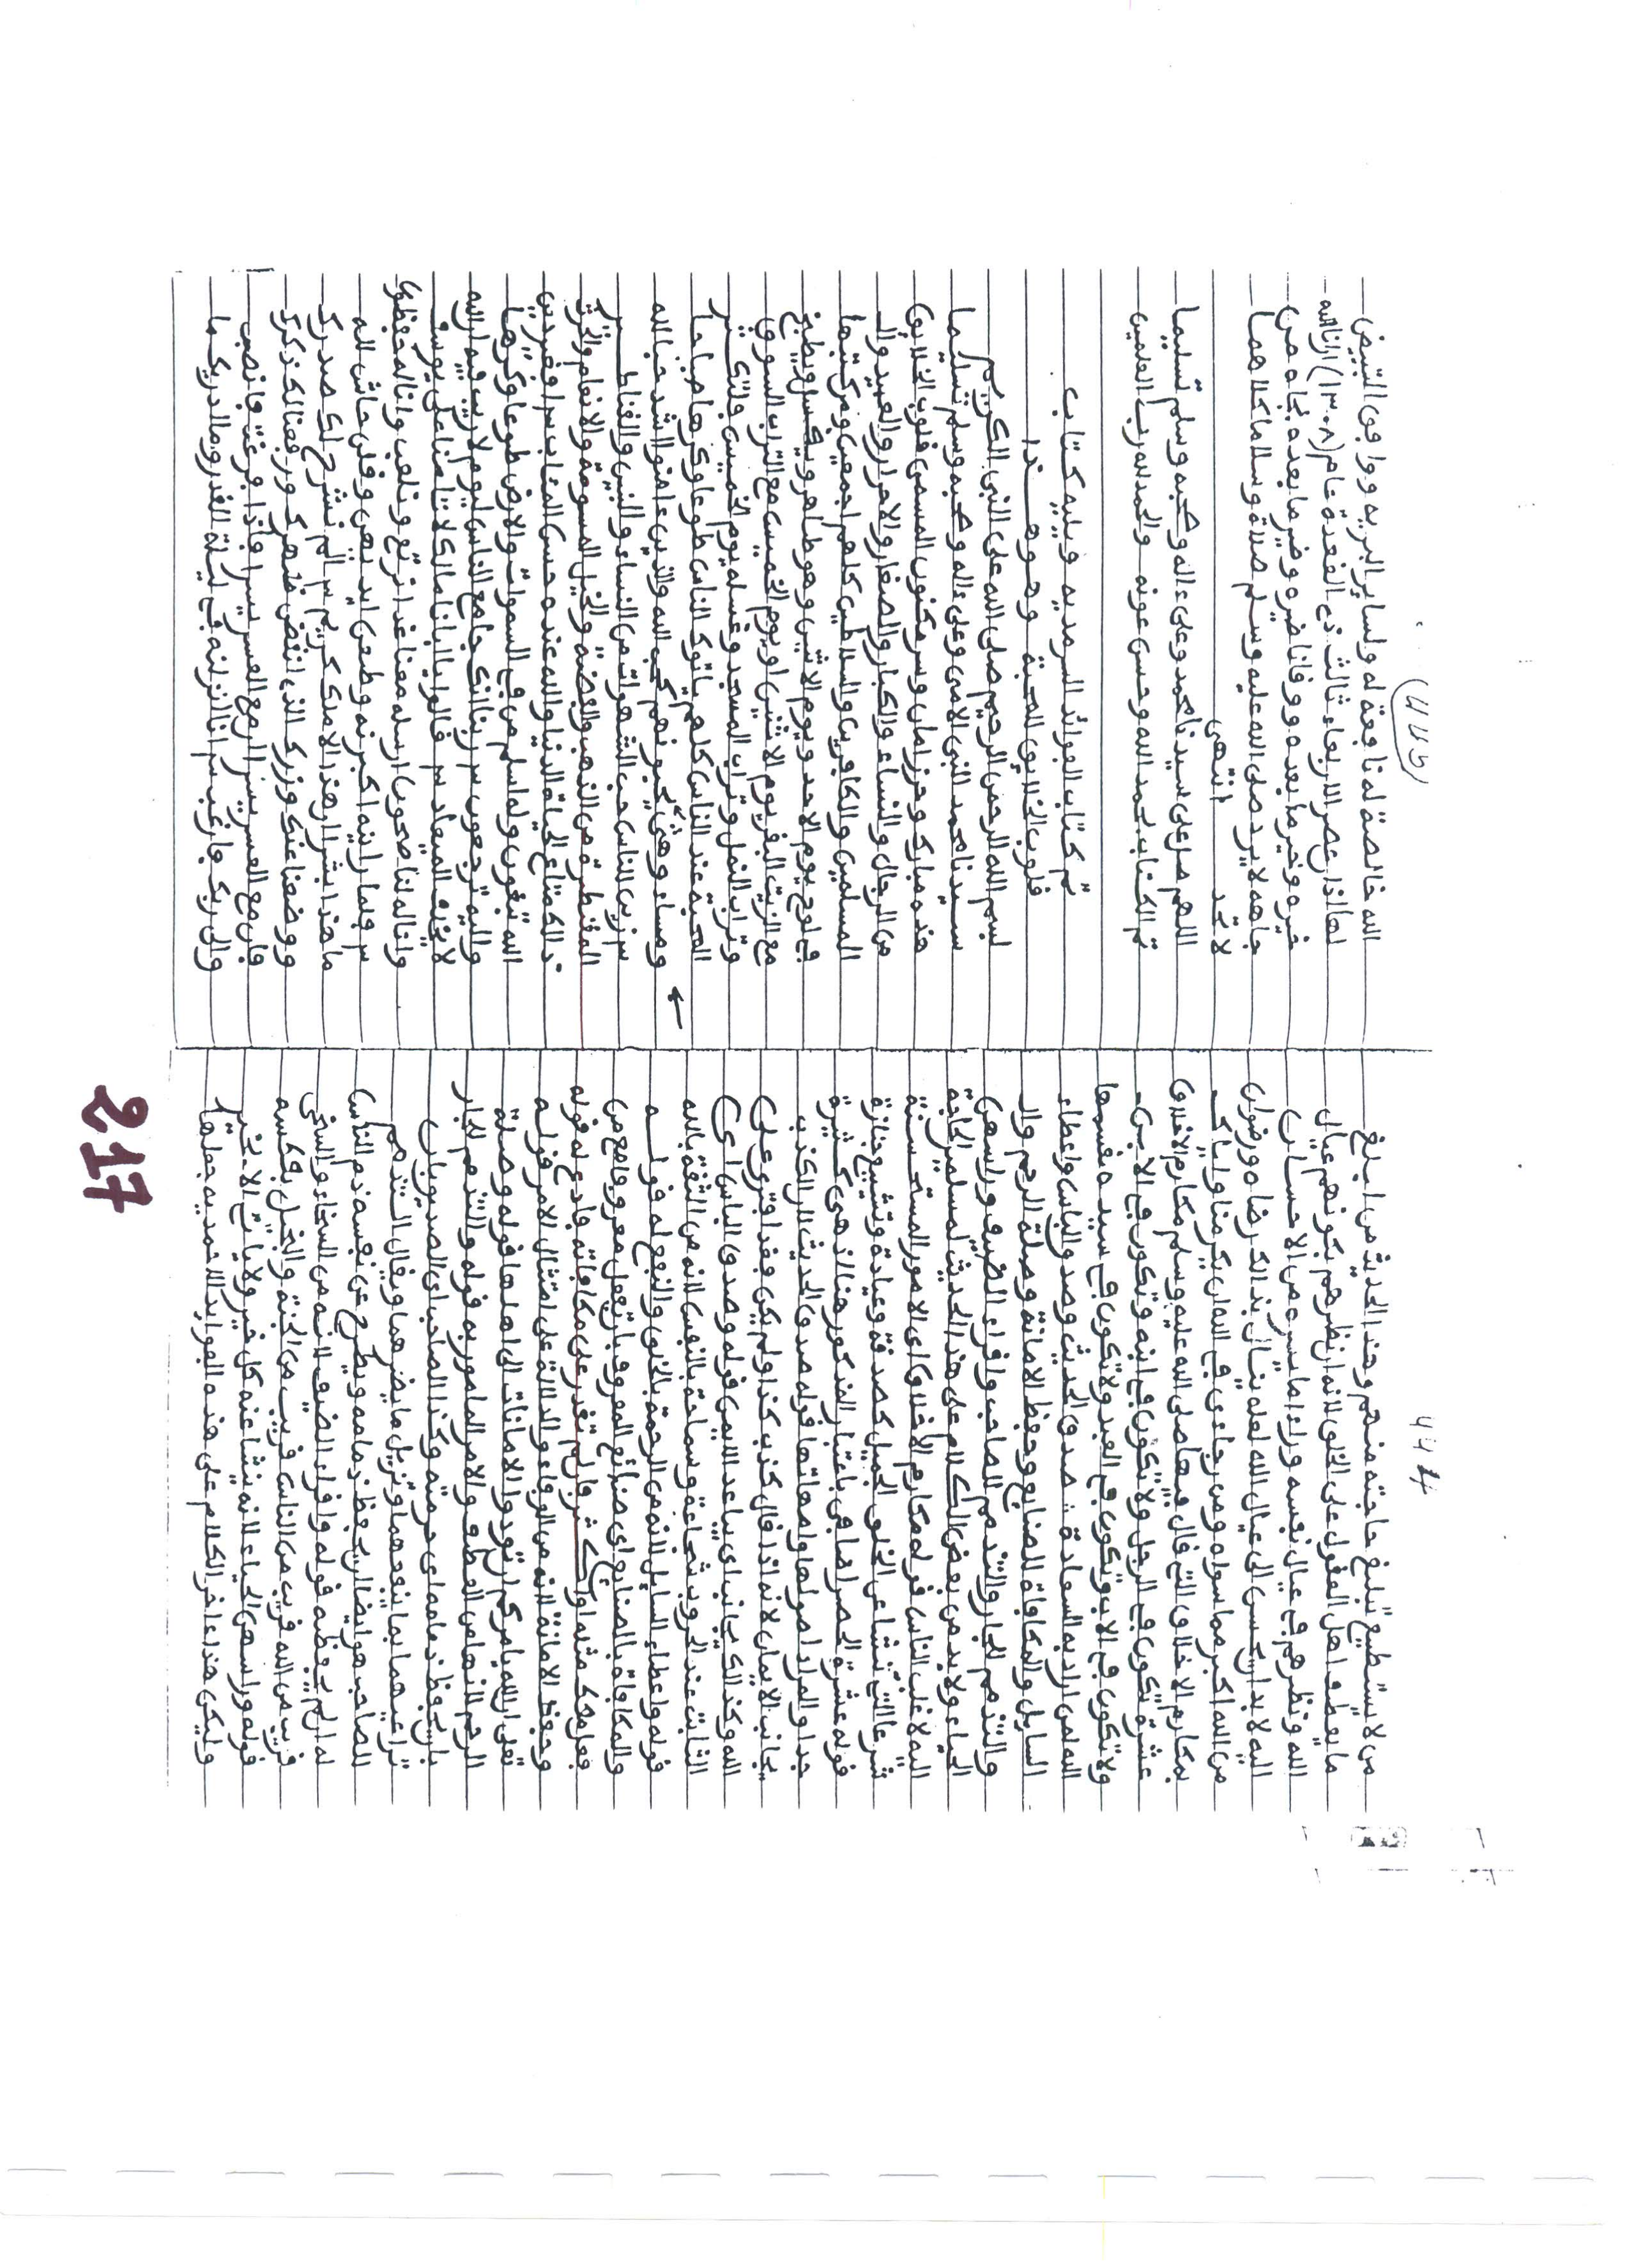 من لا يستطيع تبليغ حاجته منهم وهذا الحديث من ابلغ
ما يعطف اهل العقول على الخلق لانه ان نظرهم بكونهم عيال
الله ونظرهم في عيال نفسه وراء ما يسره من الاحسان
اليه لا بد ان يحسن الى عيال الله لعله ينال بذالك رضاه ورضوان
من الله اكبر مما سواه ومن رجاءي في الله ان يكرمنا واياك
بمكارم الاخلاق التي قال فيها صلى الله عليه وسلم مكارم الاخلاق
عشرة تكون في الرجل ولا تكون في ابنه وتكون في الابن
ولا تكون في الاب وتكون في العبد ولا تكون في سيده يقسمها
الله لمن اراد به السعادة صدق الحديث وصدق الباس واعطاء
السايل والمكافاة للصنايع وحفظ الامانة وصلة الرحم وال
والتذمم للجار والتذمم للصاحب واقراء الضيف وراسهن
الحياء ولا بد من بعض الكلام على هذا الحديث لمسلم الحاجة
اليه لاغلب الناس قوله مكارم الاخلاق اى الامور المستحسنة
شرعا التي تنشا عن الخلق الجميل كصدقة وعيادة وتشييع جنازة
قوله عشرة الحصر اضافي باعتبار المذكور هنا اذ هي كثيرة
جدا والمراد اصولها وامهاتها قوله صدق الحديث لان الكذب
يجانب الايمان لانه اذا قال كذب كذا ولم يكن فقد افترى على
الله وكذالك يجانب اى يباعد الايمن قوله وصدق الباس اى
الثابت عند الحروب شجاعة وسماحة بالنفس لانه من الثقة بالله
قوله واعطاء السايل لانه من الرحمة بالخلق والنفع له قوله
والمكافاة بالصنايع اى صنائع المعروف بان تفعل معروفا مع من
فعل معك مثله او اكثر فان لم تقدر على مكافاته فادع له قوله
وحفظ الامانة لانه من الوفاء والدلالة على امتثال الامر قوله
تعلى ان الله يامركم ان تودوا الامانات الى اهلها قوله وصلة
الرحم لانها من العطف والامر المامور به قوله والتذمم للجار
بان يحفظ ذمامه اى حرمته وكذا الصاحب اى الصديق بان
تراعيهما بما ينفعهما وتزيل ما يضرهما ويقال التذمم
للصاحب هو ايضا ان يحفظ ذمامه ويطرح عن نفسه ذم الناس
له ان لم يحفظه قوله واقراء الضيف لانه من السخاء والسخي
قريب من الله قريب من الناس قريب من الجنة والبخيل بعكسه
قوله وراسهن الحياء لانه ينشا عنه كل خير ولا ياتي الا بخير
وليكن هذا ءاخر الكلام على هذه الفوايد السرمديه جعلها
الله خالصة له نافعة له ولساير البريه ووافق التبييض
لها اذان عصر الاربعاء ثالث ذي القعدة عام (١٣٠٨) ارانا الله
خيره وخير ما بعده ووقانا ضيره وضير ما بعده بجاه من
جاهه لا يرد صلى الله عليه وسلم صلاة وسلاما كلاهما
لا تحد انتهى
اللهم صل على سيدنا محمد وعلى ءاله وصحبه وسلم تسليما
تم الكتاب بحمد الله وحسن عونه والحمد لله رب العلمين
تم كتاب الفوائد السرمديه ويليه كتاب
قلوب الخلايق المحبة وهو هذا
بسم الله الرحمن الرحيم صلى الله على النبي الكريم
سيدنا محمد النبي الامي وعلى ءاله وصحبه وسلم تسليما
هذه مبارك وحرز امان وسر مكنون المسمى قلوب الخلايق
من الرجال والنساء والكبار والصغار والاحرار والعبيد وال
المسلمين والكافرين والسلاطين كلهم اجمعين ومن كتبها
في لوح يوم الاحد ويوم الاثنين وهو طاهر ويغسل ويطبخ
مع الزيت البقر يوم الاثنين او يوم الخميس مع التراب السوق
وتراب النمل وتراب المسجد وغسله يوم الخميس ولتكثر
المحبة عند الناس كلهم ياتوك الناس طوعا وكرها صباحا
ومساء وهي يحبونهم كحب الله والذين ءامنوا اشد حبا لله
س زين للناس حب الشهوات من النساء والبنين والقناطير
المقنطرة من الذهب والفضة والخيل المسومة والانعام والحرث
ذالك متاع الحياة الدنيا والله عنده حسن المئاب س افغير دين
الله تبغون وله اسلم من في السموات والارض طوعا وكرها
واليه ترجعون س ربنا انك جامع الناس ليوم لا ريب فيه ان الله
لا يخلف الميعاد س قالوا يا ابانا مالك لا تامنا على يوسف
وانا له لناصحون ارسله معنا غدا نرتع ونلعب وانا له لحفظون
س فلما راينه اكبرنه وقطعن ايديهن وقلن حاش لله
ما هذا بشرا ان هذا الا ملك كريم س الم نشرح لك صدرك
ووضعنا عنك وزرك الذى انقض ظهرك ورفعنا لك ذكرك
فان مع العسر يسرا ان مع العسر يسرا فاذا فرغت فانصب
والى ربك فارغب س انا انزلنه في ليلة القدر وما ادريك ما
217